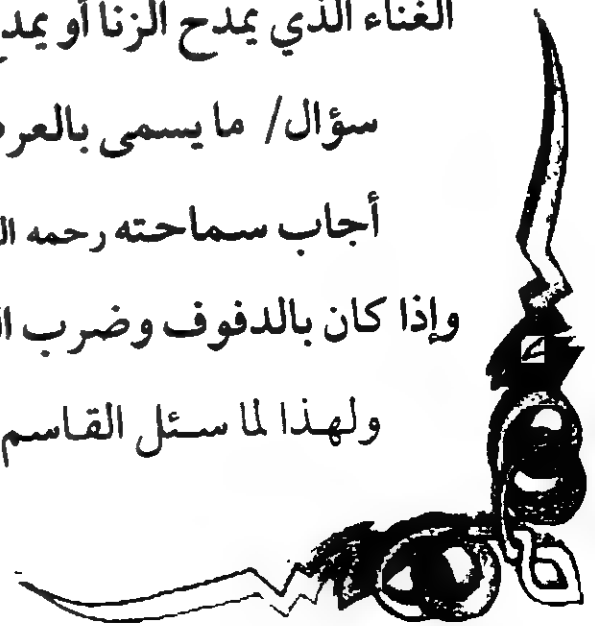 الغناء الذي يمدح الزنا أو
سؤال/ ما يسمى
أجاب سماحته رحمه
وإذا كان بالدفوف وضرب
ولهذا لما سئل القاسم